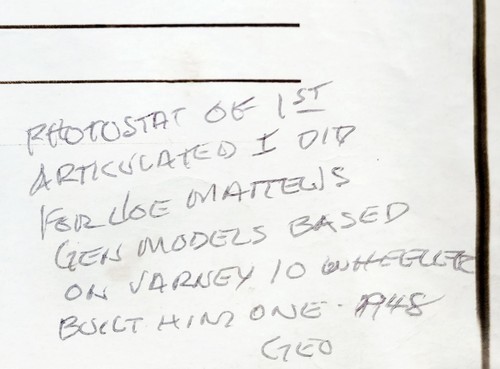 PHOTOSTAT OF 1ST
ARTICULATED I DID
FOR JOE MATTEWS
GEN MODELS BASED
ON VARNEY 10 WHEELER
BUILT HIM ONE. 1948
GEO